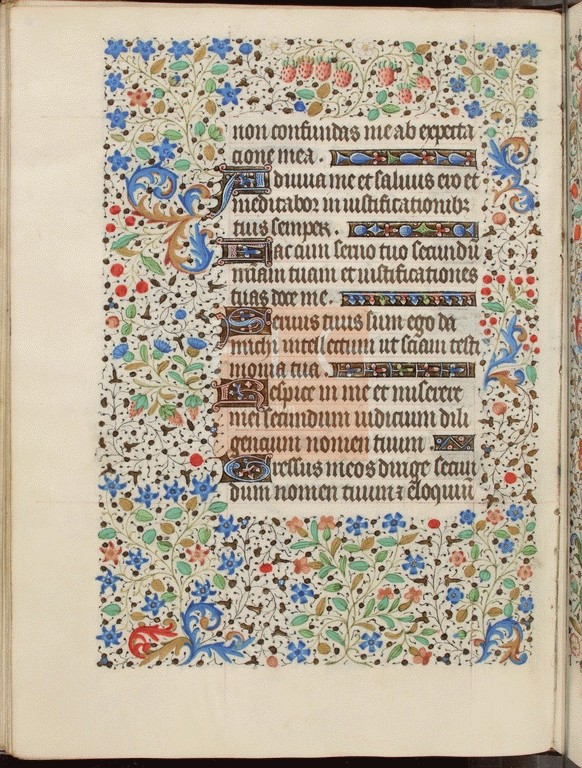 non confundas me ab expecta
cione mea .
Adiuua me et saluus ero et
meditabor in iustificationibꝫ
tuis semper .
Fac cum seruo tuo secundū
miām tuam et iustificationes
tuas doce me .
Seruus tuus sum ego da
michi intellectum ut sciam testi
monia tua .
Respice in me et miserere
mei secundum iudicium dili
gencium nomen tuum
Gressus meos dirige secun
dum nomen tuum ⁊ eloquiū